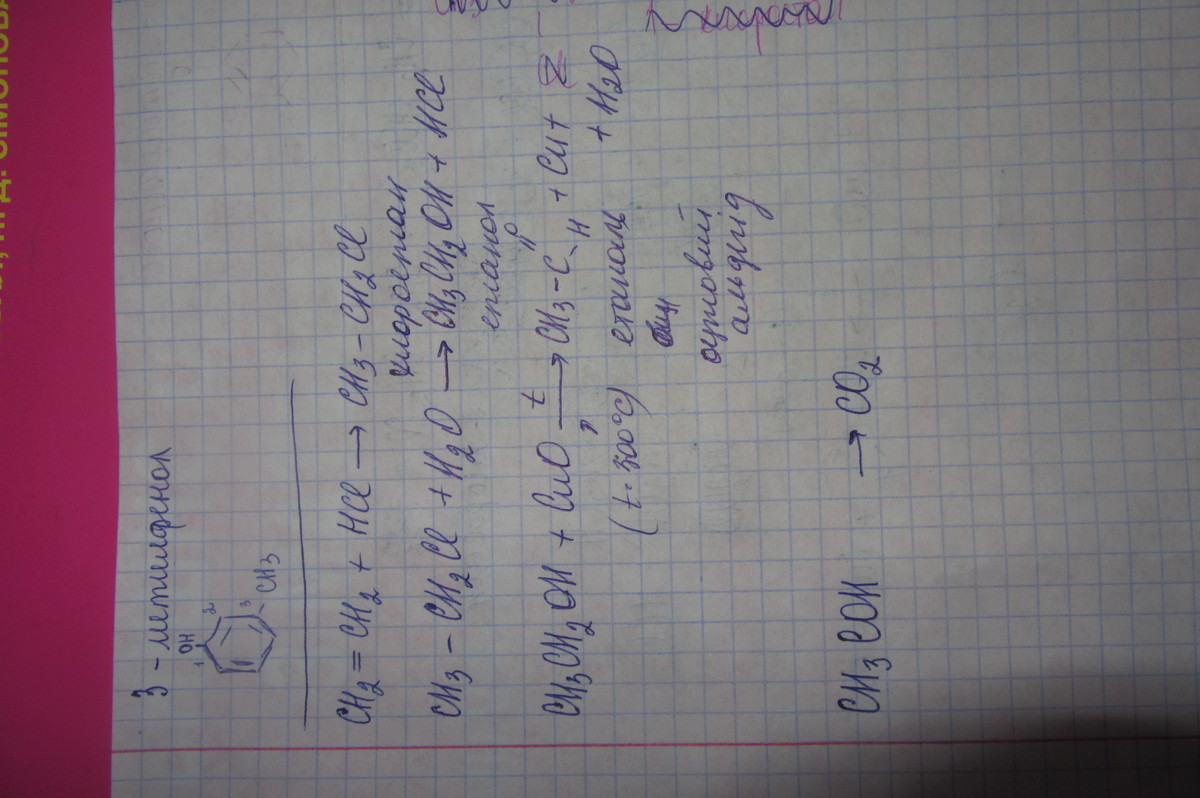 3 - метилфенол
OH
1
2
3
CH3
CH2 = CH2 + HCl → CH3 - CH2Cl
хлороетан
CH3 - CH2Cl + H2O → CH3CH2OH + HCl
етанол
CH3CH2OH + CuO →t CH3 - C O H + Cu +
+ H2O
(t = 300°C)
етаналь
оцтовий
альдегід
CH3COH → CO2